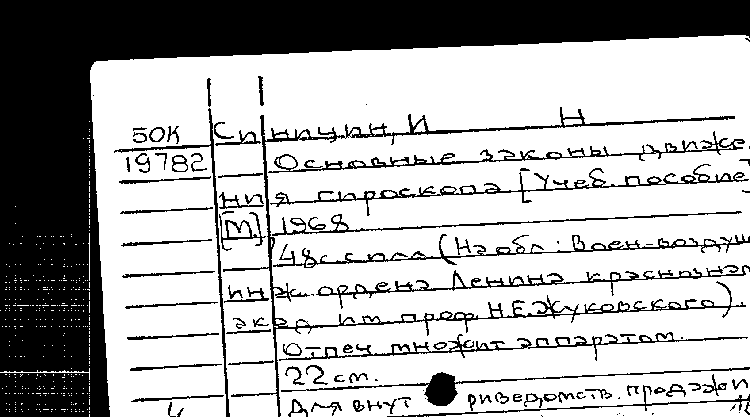 50К Синицин, И Н
19782 Основные законы движе
ния гироскопа [Учеб. пособие]
[М.] 1968
48с. с илл (На обл: Воен-воздуш
инж. ордена Ленина краснозна
акад им проф Н.Е.Жуковского).
Отпеч множит аппаратом.
22 см.
Для внут риведомств. продажи